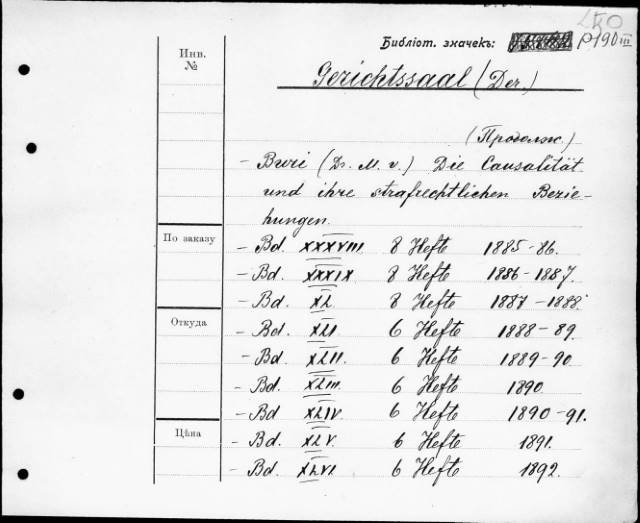 250
Библіот. значекъ: P190 III
Инв.
№
Gerichtssaal (Der.)
(Продолж.)
- Buri (Dr. M. v.) Die Causalität
und ihre strafrechtlichen Bezie-
hungen.
- Bd. XXXVIII 8 Hefte 1885-86.
По заказу
- Bd. XXXIX 8 Hefte 1886-1887.
- Bd. XL 8 Hefte 1887-1888.
Откуда
- Bd. XLI 6 Hefte 1888-89.
- Bd. XLII. 6 Hefte 1889-90.
- Bd. XLIII. 6 Hefte 1890.
- Bd XLIV. 6 Hefte 1890-91.
Цѣна
- Bd. XLV. 6 Hefte 1891.
- Bd. XLVI. 6 Hefte 1892.